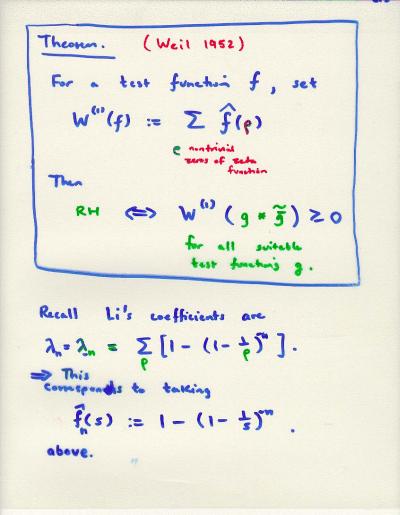 Theorem. (Weil 1952)
For a test function f, set
W⁽¹⁾(f) := Σ f̂(ρ)
ρ nontrivial
zeros of zeta
function
Then
RH ⟺ W⁽¹⁾(g * g̃̄) ≥ 0
for all suitable
test functions g.
Recall Li's coefficients are
λₙ = λ₋ₙ = Σ_ρ [1 - (1 - 1/ρ)⁻ⁿ].
⟹ This
corresponds to taking
f̂ₙ(s) := 1 - (1 - 1/s)⁻ⁿ.
above.